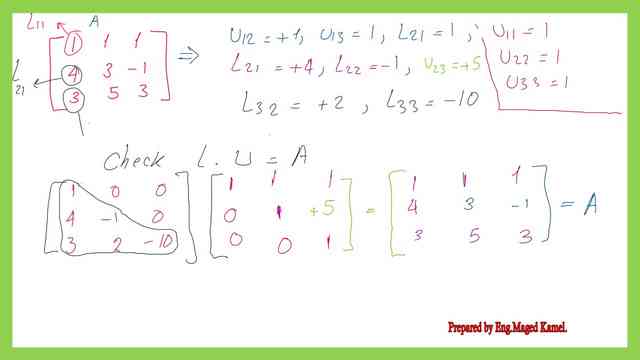 L11 A
[1 1 1
4 3 -1
3 5 3] ⇒
L21
U12 = +1, U13 = 1, L21 = 1,
L21 = +4, L22 = -1, U23 = +5
L32 = +2, L33 = -10
U11 = 1
U22 = 1
U33 = 1
Check L. U = A
[1 0 0
4 -1 0
3 2 -10] [1 1 1
0 1 +5
0 0 1] = [1 1 1
4 3 -1
3 5 3] = A
Prepared by Eng.Maged Kamel.